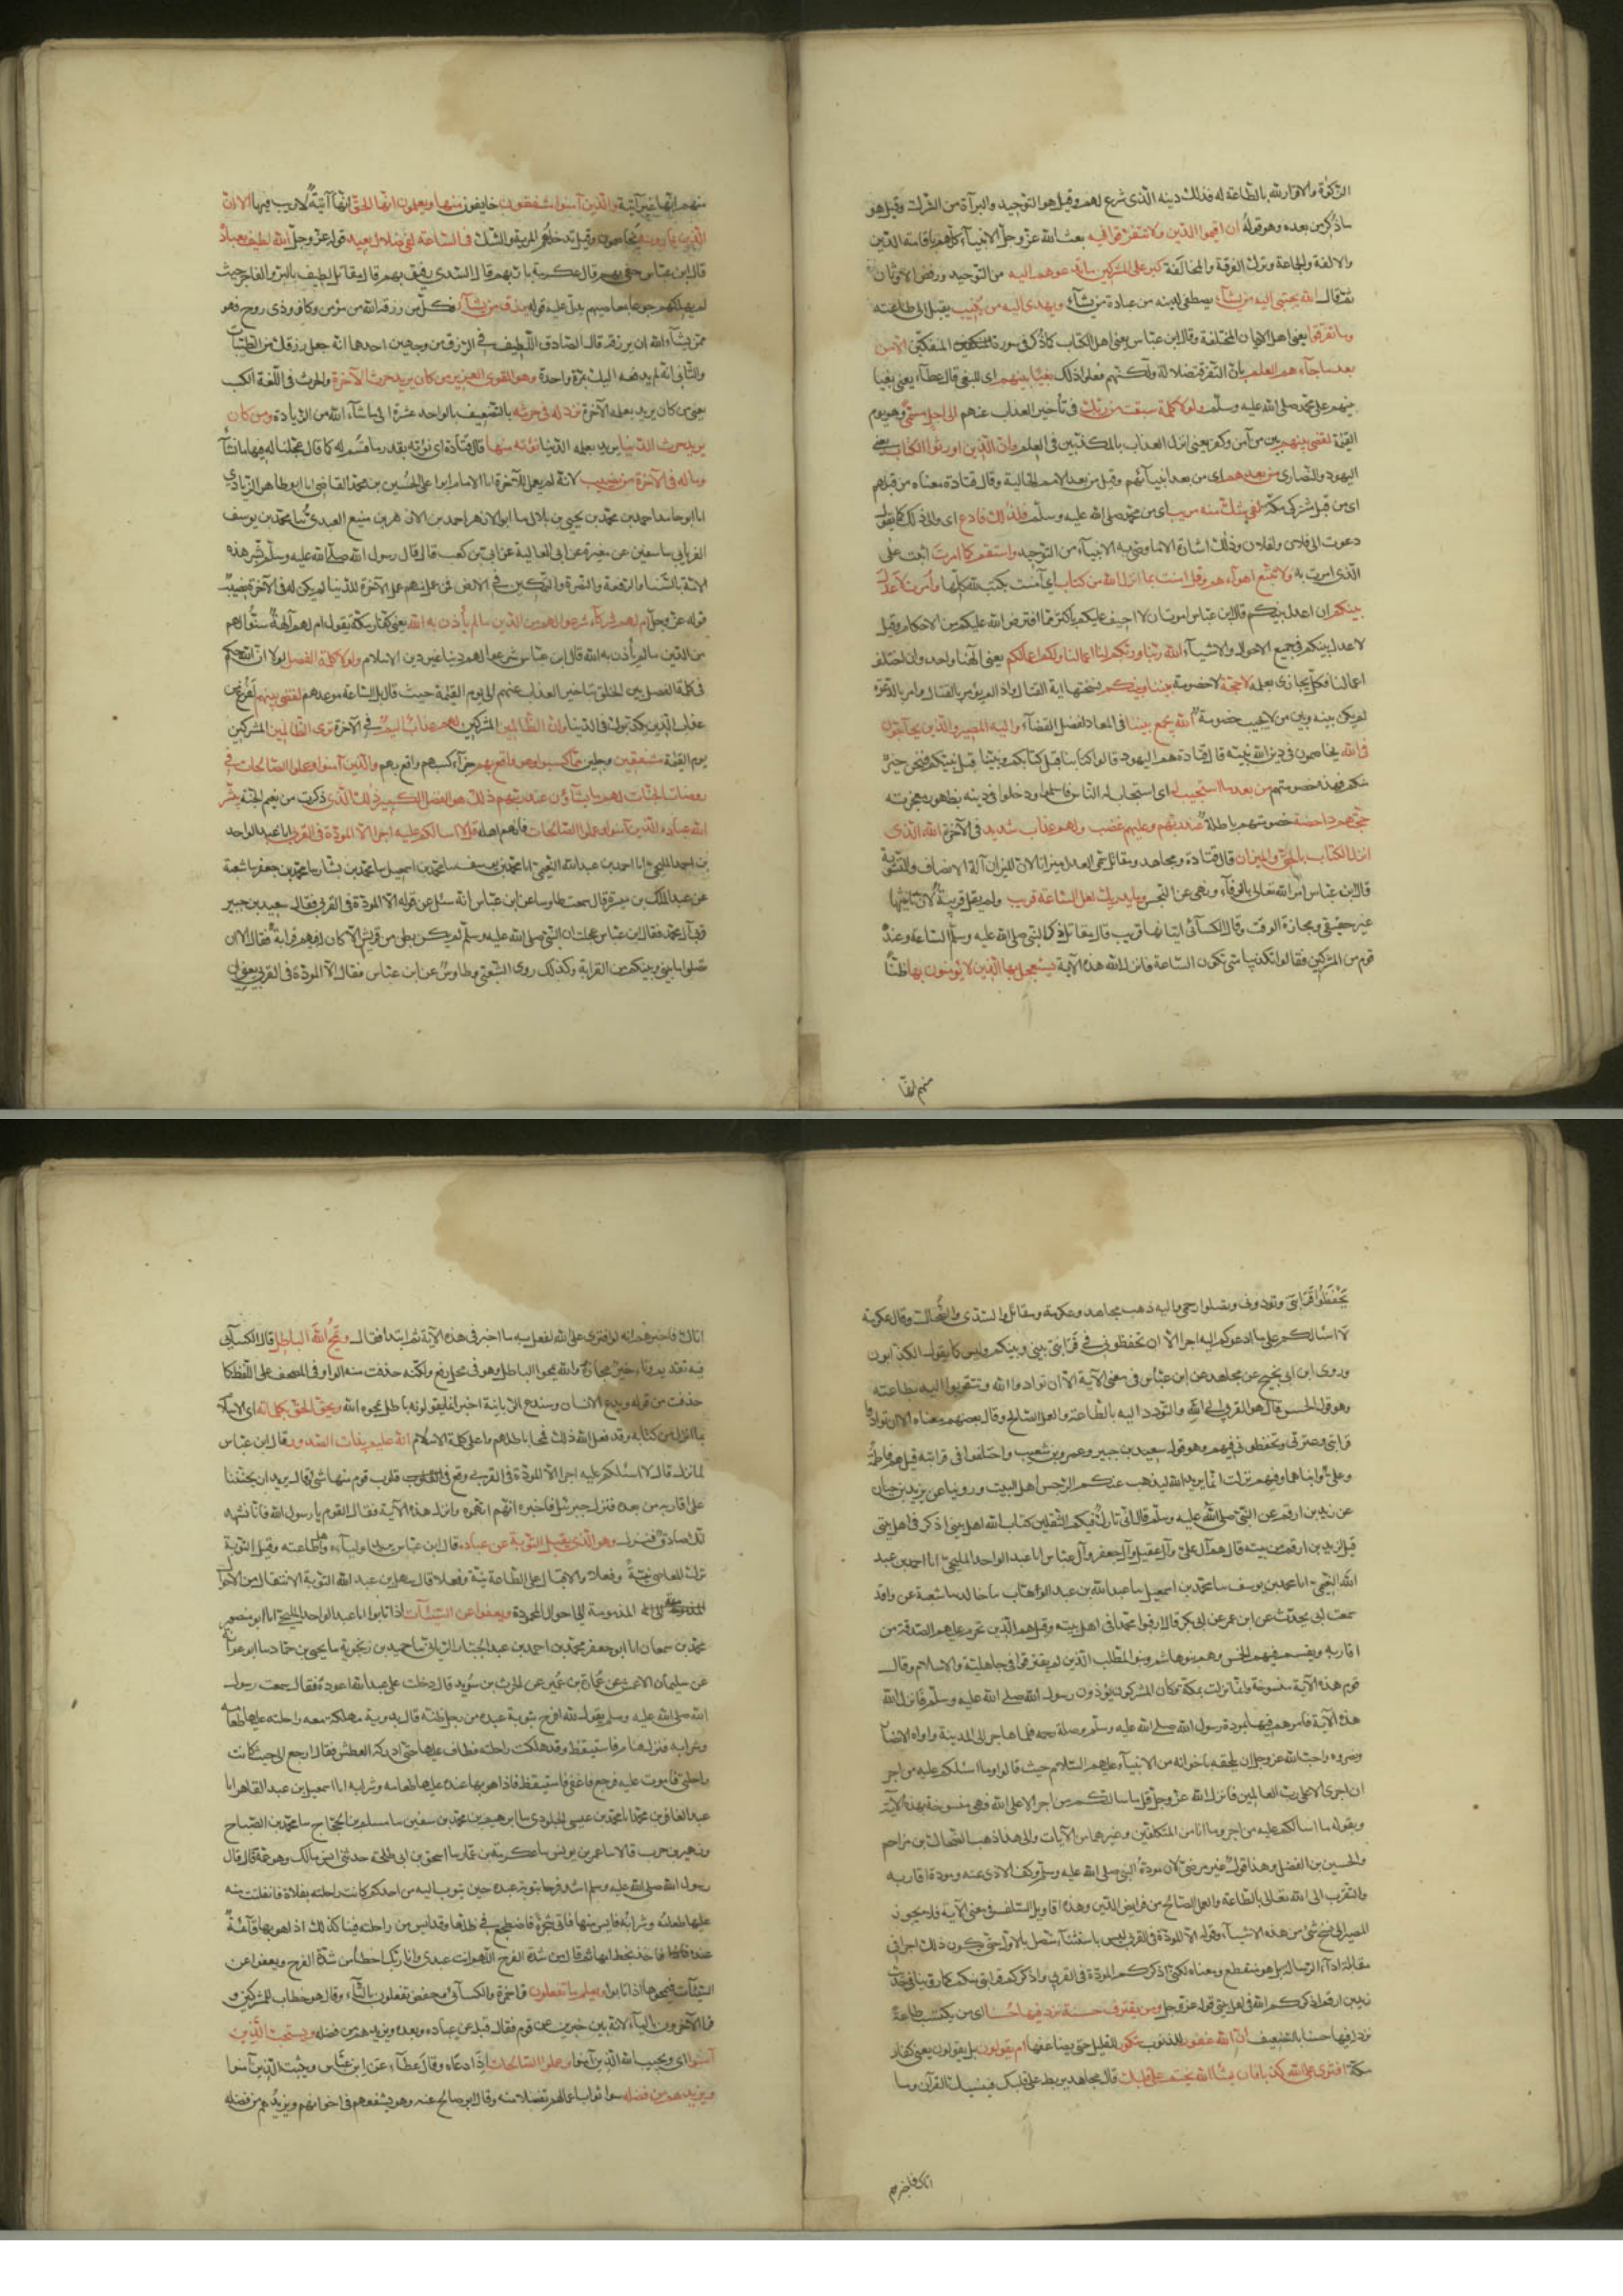 الزكوة والاقرار لله بالطاعة له فذلك دينه الذى شرع لهم وقيل هو التوحيد والبرآة من الشرك وقيل هو
ما ذكر من بعده وهو قوله ان اقيموا الدين ولا تتفرقوا فيه بعث الله عز وجل الانبيآء كلهم باقامة الدين
والالفة والجماعة وترك الفرقة والمخالفة كبر على المشركين ما تدعوهم اليه من التوحيد ورفض الاوثان
ثم قال الله يجتبى اليه من يشآء يصطفى لدينه من عباده من يشآء ويهدى اليه من ينيب يقبل الى طاعته
وما تفرقوا يعنى اهل الاديان المختلفة وقال ابن عباس يعنى اهل الكتاب كما ذكر فى سورة المنفكين الا من
بعد ما جآءهم العلم بان التفرقة ضلالة ولكنهم فعلوا ذلك بغيا بينهم اى للبغى قال عطآء يعنى بغيا
بينهم على محمد صلى الله عليه وسلم ولولا كلمة سبقت من ربك فى تأخير العذاب عنهم الى اجل مسمى وهو يوم
القيمة لقضى بينهم بين من آمن وكفر يعنى انزل العذاب بالمكذبين فى العلم وان الذين اورثوا الكتاب يعنى
اليهود والنصارى من بعدهم اى من بعد انبيآئهم وقيل من بعد الامم الخالية وقال قتادة معناه من قبلهم
اى من قبل مشركى مكة لفى شك منه مريب اى من محمد صلى الله عليه وسلم فلذلك فادع اى والى ذلك كما يقول
دعوت الى فلان ولفلان وذلك اشارة الى ما وصى به الانبيآء من التوحيد واستقم كما امرت اثبت على
الذى امرت به ولا تتبع اهوآءهم وقل امنت بما انزل الله من كتاب اى آمنت بكتب الله كلها وامرت لاعدل
بينكم ان اعدل بينكم قال ابن عباس امرت ان لا احيف عليكم باكثر مما افترض الله عليكم من الاحكام وقيل
لاعدل بينكم فى جميع الاحوال والاشيآء الله ربنا وربكم لنا اعمالنا ولكم اعمالكم يعنى الهنا واحد وان اختلف
اعمالنا فكل يجازى بعمله لا حجة لا خصومة بيننا وبينكم نسختها اية القتال واذا لم يؤمر بالقتال وامر بالدعوة
لم يكن بينه وبين من لا يجيب خصومة الله يجمع بيننا فى المعاد لفصل القضآء واليه المصير والذين يحآجون
فى الله يخاصمون فى دين الله نبيه قال قتادة هم اليهود قالوا كتابنا قبل كتابكم ونبينا قبل نبيكم فنحن خير
منكم فهذه خصومتهم من بعد ما استجيب له اى استجاب له الناس فاسلموا ودخلوا فى دينه بظهور معجزته
حجتهم داحضة خصومتهم باطلة عند ربهم وعليهم غضب ولهم عذاب شديد فى الآخرة الله الذى
انزل الكتاب بالحق والميزان قال قتادة ومجاهد ومقاتل سمى العدل ميزانا لان الميزان آلة الانصاف والتسوية
قال ابن عباس امر الله تعالى بالوفآء ونهى عن البخس وما يدريك لعل الساعة قريب ولم يقل قريبة لان تانيثها
غير حقيقى ومجازه الوقت وقال الكسآئى اتيانها قريب قال مقاتل ذكر النبى صلى الله عليه وسلم الساعة وعنده
قوم من المشركين فقالوا تكذيبا متى تكون الساعة فانزل الله هذه الآية يستعجل بها الذين لا يؤمنون بها ظنا
منهم انها
منهم انها غير آتية والذين آمنوا مشفقون خايفون منها ويعلمون انها الحق انها آتية لا ريب فيها الا ان
الذين يمارون يخاصمون وقيل تدخلهم المرية والشك فى الساعة لفى ضلال بعيد قوله عز وجل الله لطيف بعباده
قال ابن عباس حفى بهم قال عكرمة بار بهم قال السدى رفيق بهم قال مقاتل لطيف بالبر والفاجر حيث
لم يهلكهم جوعا بمعاصيهم يدل عليه قوله يرزق من يشآء فكل من رزقه الله من مؤمن وكافر وذى روح فهو
ممن يشآء الله ان يرزقه قال الصادق اللطيف فى الرزق من وجهين احدهما انه جعل رزقك من الطيبات
والثانى انه لم يدفعه اليك بمرة واحدة وهو القوى العزيز من كان يريد حرث الآخرة والحرث فى اللغة الكسب
يعنى من كان يريد بعمله الآخرة نزد له فى حرثه بالتضعيف بالواحد عشرة الى ما شآء الله من الزيادة ومن كان
يريد حرث الدنيا يريد بعمله الدنيا نؤته منها قال قتادة اى نؤته بقدر ما قسم له كما قال عجلنا له فيها ما نشآ
وما له فى الآخرة من نصيب لانه لم يعمل للآخرة انا الامام ابو على الحسين بن محمد القاضى انا ابو طاهر الزيادى
انا ابو حامد احمد بن محمد بن يحيى بن بلال سا ابو الازهر احمد بن الازهر بن منيع العبدى ثنا محمد بن يوسف
الفريابى سا سفين عن مغيرة عن ابى العالية عن ابى بن كعب قال قال رسول الله صلى الله عليه وسلم بشر هذه
الامة بالسنا والرفعة والنصرة والتمكين فى الارض فمن عمل منهم عمل الآخرة للدنيا لم يكن له فى الآخرة نصيب
قوله عز وجل ام لهم شركآء شرعوا لهم من الدين ما لم يأذن به الله يعنى كفار مكة يقول ام لهم آلهة سنوا لهم
من الدين ما لم يأذن به الله قال ابن عباس شرعوا لهم دينا غير دين الاسلام ولولا كلمة الفصل لولا ان الله حكم
فى كلمة الفصل بين الخلق بتاخير العذاب عنهم الى يوم القيمة حيث قال بل الساعة موعدهم لقضى بينهم لفرغ من
عذاب الذين يكذبونك فى الدنيا وان الظالمين المشركين لهم عذاب اليم فى الآخرة ترى الظالمين المشركين
يوم القيمة مشفقين وجلين مما كسبوا وهو واقع بهم جزآء كسبهم واقع بهم والذين آمنوا وعملوا الصالحات فى
روضات الجنات لهم ما يشآؤن عند ربهم ذلك هو الفضل الكبير ذلك الذى ذكرت من نعيم الجنة يبشر
الله عباده الذين آمنوا وعملوا الصالحات فانهم اهله قل لا اسالكم عليه اجرا الا المودة فى القربى انا عبد الواحد
بن احمد المليحى انا احمد بن عبد الله النعيمى انا محمد بن يوسف سا محمد بن اسمعيل سا محمد بن بشار سا محمد بن جعفر سا شعبة
عن عبد الملك بن ميسرة قال سمعت طاوسا عن ابن عباس انه سئل عن قوله الا المودة فى القربى فقال سعيد بن جبير
قربى آل محمد فقال ابن عباس عجلت ان النبى صلى الله عليه وسلم لم يكن بطن من قريش الا كان له فيهم قرابة فقال الا ان
تصلوا ما بينى وبينكم من القرابة وكذلك روى الشعبى وطاوس عن ابن عباس فقال الا المودة فى القربى يعنى ان
تحفظوا قرابتى وتودونى وتصلوا رحمى واليه ذهب مجاهد وعكرمة ومقاتل والسدى والضحاك وقال عكرمة
لا اسالكم على ما ادعوكم اليه اجرا الا ان تحفظونى فى قرابتى بينى وبينكم وليس كما يقول الكذابون
وروى ابن ابى نجيح عن مجاهد عن ابن عباس فى معنى الآية الا ان توادوا الله وتتقربوا اليه بطاعته
وهو قول الحسن قال هو القربى الى الله والتودد اليه بالطاعة والعمل الصالح وقال بعضهم معناه الا ان توادوا
قرابتى وعترتى وتحفظونى فيهم وهو قول سعيد بن جبير وعمرو بن شعيب واختلفوا فى قرابته قيل هم فاطمة
وعلى وابناهما وفيهم نزلت انما يريد الله ليذهب عنكم الرجس اهل البيت وروينا عن يزيد بن حيان
عن زيد بن ارقم عن النبى صلى الله عليه وسلم قال انى تارك فيكم الثقلين كتاب الله واهل بيتى اذكركم الله فى اهل بيتى
قيل لزيد بن ارقم من اهل بيته قال هم آل على وآل عقيل وآل جعفر وآل عباس انا عبد الواحد المليحى انا احمد بن عبد
الله النعيمى انا محمد بن يوسف سا محمد بن اسمعيل سا عبد الله بن عبد الوهاب سا خالد سا شعبة عن واقد
سمعت ابى يحدث عن ابن عمر عن ابى بكر قال ارقبوا محمدا فى اهل بيته وقيل هم الذين تحرم عليهم الصدقة من
اقاربه ويقسم فيهم الخمس وهم بنو هاشم وبنو المطلب الذين لم يفترقوا فى جاهلية ولا اسلام وقال
قوم هذه الآية منسوخة وانما نزلت بمكة وكان المشركون يؤذون رسول الله صلى الله عليه وسلم فانزل الله
هذه الآية فامرهم فيها بمودة رسول الله صلى الله عليه وسلم وصلة رحمه فلما هاجر الى المدينة واواه الانصار
ونصروه واحب الله عز وجل ان يلحقه باخوانه من الانبيآء عليهم السلام حيث قالوا وما اسئلكم عليه من اجر
ان اجرى الا على رب العالمين فانزل الله عز وجل قل ما سالتكم من اجر الا على الله فهى منسوخة بهذه الآية
وبقوله ما اسالكم عليه من اجر وما انا من المتكلفين وغيرهما من الآيات والى هذا ذهب الضحاك بن مزاحم
والحسين بن الفضل وهذا قول غير مرضى لان مودة النبى صلى الله عليه وسلم وكف الاذى عنه ومودة اقاربه
والتقرب الى الله تعالى بالطاعة والعمل الصالح من فرايض الدين وهذه اقاويل السلف فى معنى الآية فلا يجوز
المصير الى نسخ شئ من هذه الاشيآء وقوله الا المودة فى القربى ليس باستثنآء متصل بالاول حتى يكون ذلك اجرا فى
مقابلة ادآء الرسالة بل هو منقطع ومعناه لكنى اذكركم المودة فى القربى واذكركم قرابتى منكم كما روينا فى حديث
زيد بن ارقم اذكركم الله فى اهل بيتى قوله عز وجل ومن يقترف حسنة نزد له فيها حسنا اى من يكتسب طاعة
نزد له فيها حسنا بالتضعيف ان الله غفور للذنوب شكور للقليل حتى يضاعفها ام يقولون بل يقولون يعنى كفار
مكة افترى على الله كذبا فان يشا الله يختم على قلبك قال مجاهد يربط على قلبك فينسيك القرآن وما
اتاك فاخبرهم
اتاك فاخبرهم انه لو افترى على الله لفعل به ما اخبر فى هذه الآية ثم ابتدا فقال ويمح الله الباطل قال الكسآئى
فيه تقديم وتاخير مجازه والله يمحو الباطل وهو فى محل رفع ولكنه حذفت منه الواو فى المصحف على اللفظ كما
حذفت من قوله ويدع الانسان وسندع الزبانية اخبر ان ما يقولونه باطل يمحوه الله ويحق الحق بكلماته اى الاسلام
بما انزل من كتابه وقد فعل الله ذلك فمحا باطلهم واعلى كلمة الاسلام انه عليم بذات الصدور قال ابن عباس
لما نزل قل لا اسئلكم عليه اجرا الا المودة فى القربى وقع فى قلوب قوم منها شئ وقالوا يريد ان يحثنا
على اقاربه من بعده فنزل جبرئيل فاخبره انهم اتهموه وانزل هذه الآية فقال القوم يا رسول الله فانا نشهد
انك صادق فنزل وهو الذى يقبل التوبة عن عباده قال ابن عباس يريد اوليآءه واهل طاعته وقيل التوبة
ترك المعاصى نية وفعلا والاقبال على الطاعة نية وفعلا قال سهل بن عبد الله التوبة الانتقال من الاحوال
المذمومة الى احوال المحمودة ويعفوا عن السيئات اذا تابوا انا عبد الواحد المليحى انا ابو منصور
محمد بن سمعان انا ابو جعفر محمد بن احمد بن عبد الجبار الريانى سا حميد بن زنجوية سا يحيى بن حماد سا ابو عوانة
عن سليمان الاعمش عن عمارة بن عمير عن الحرث بن سويد قال دخلت على عبد الله اعوده فقال سمعت رسول
الله صلى الله عليه وسلم يقول لله افرح بتوبة عبده من رجل اظنه قال بدوية مهلكة معه راحلته عليها طعامه
وشرابه فنزل فنام فاستيقظ وقد هلكت راحلته فطاف عليها حتى ادركه العطش فقال ارجع الى حيث كانت
راحلتى فاموت عليه فرجع فاغفى فاستيقظ فاذا هو بها عنده عليها طعامه وشرابه انا اسمعيل بن عبد القاهر انا
عبد الغافر بن محمد انا محمد بن عيسى الجلودى سا ابرهيم بن محمد بن سفين سا مسلم بن الحجاج سا محمد بن الصباح
وزهير بن حرب قالا سا عمر بن يونس سا عكرمة بن عمار سا اسحق بن ابى طلحة حدثنى انس بن مالك وهو عمه قال قال
رسول الله صلى الله عليه وسلم اشد فرحا بتوبة عبده حين يتوب اليه من احدكم كانت راحلته بفلاة فانفلتت منه
عليها طعامه وشرابه فايس منها فاتى شجرة فاضطجع فى ظلها وقد ايس من راحلته فبينا كذلك اذ هو بها قآئمة
عنده فاخذ بخطامها ثم قال من شدة الفرح اللهم انت عبدى وانا ربك اخطأ من شدة الفرح ويعفوا عن
السيئات فيمحوها اذا تابوا ويعلم ما تفعلون قرا حمزة والكسآئى وحفص تفعلون بالتآء وقال هو خطاب للمشركين و
قرا الآخرون باليآء لانه بين خبرين عن قوم فقال قبله عن عباده وبعده ويزيدهم من فضله ويستجيب الذين
آمنوا اى ويجيب الله الذين آمنوا وعملوا الصالحات اذا دعاه وقال عطآء عن ابن عباس ويثيب الذين آمنوا
ويزيدهم من فضله سوا ثواب اعمالهم تفضلا منه وقال ابو صالح عنه وهو يشفعهم فى اخوانهم ويزيدهم من فضله